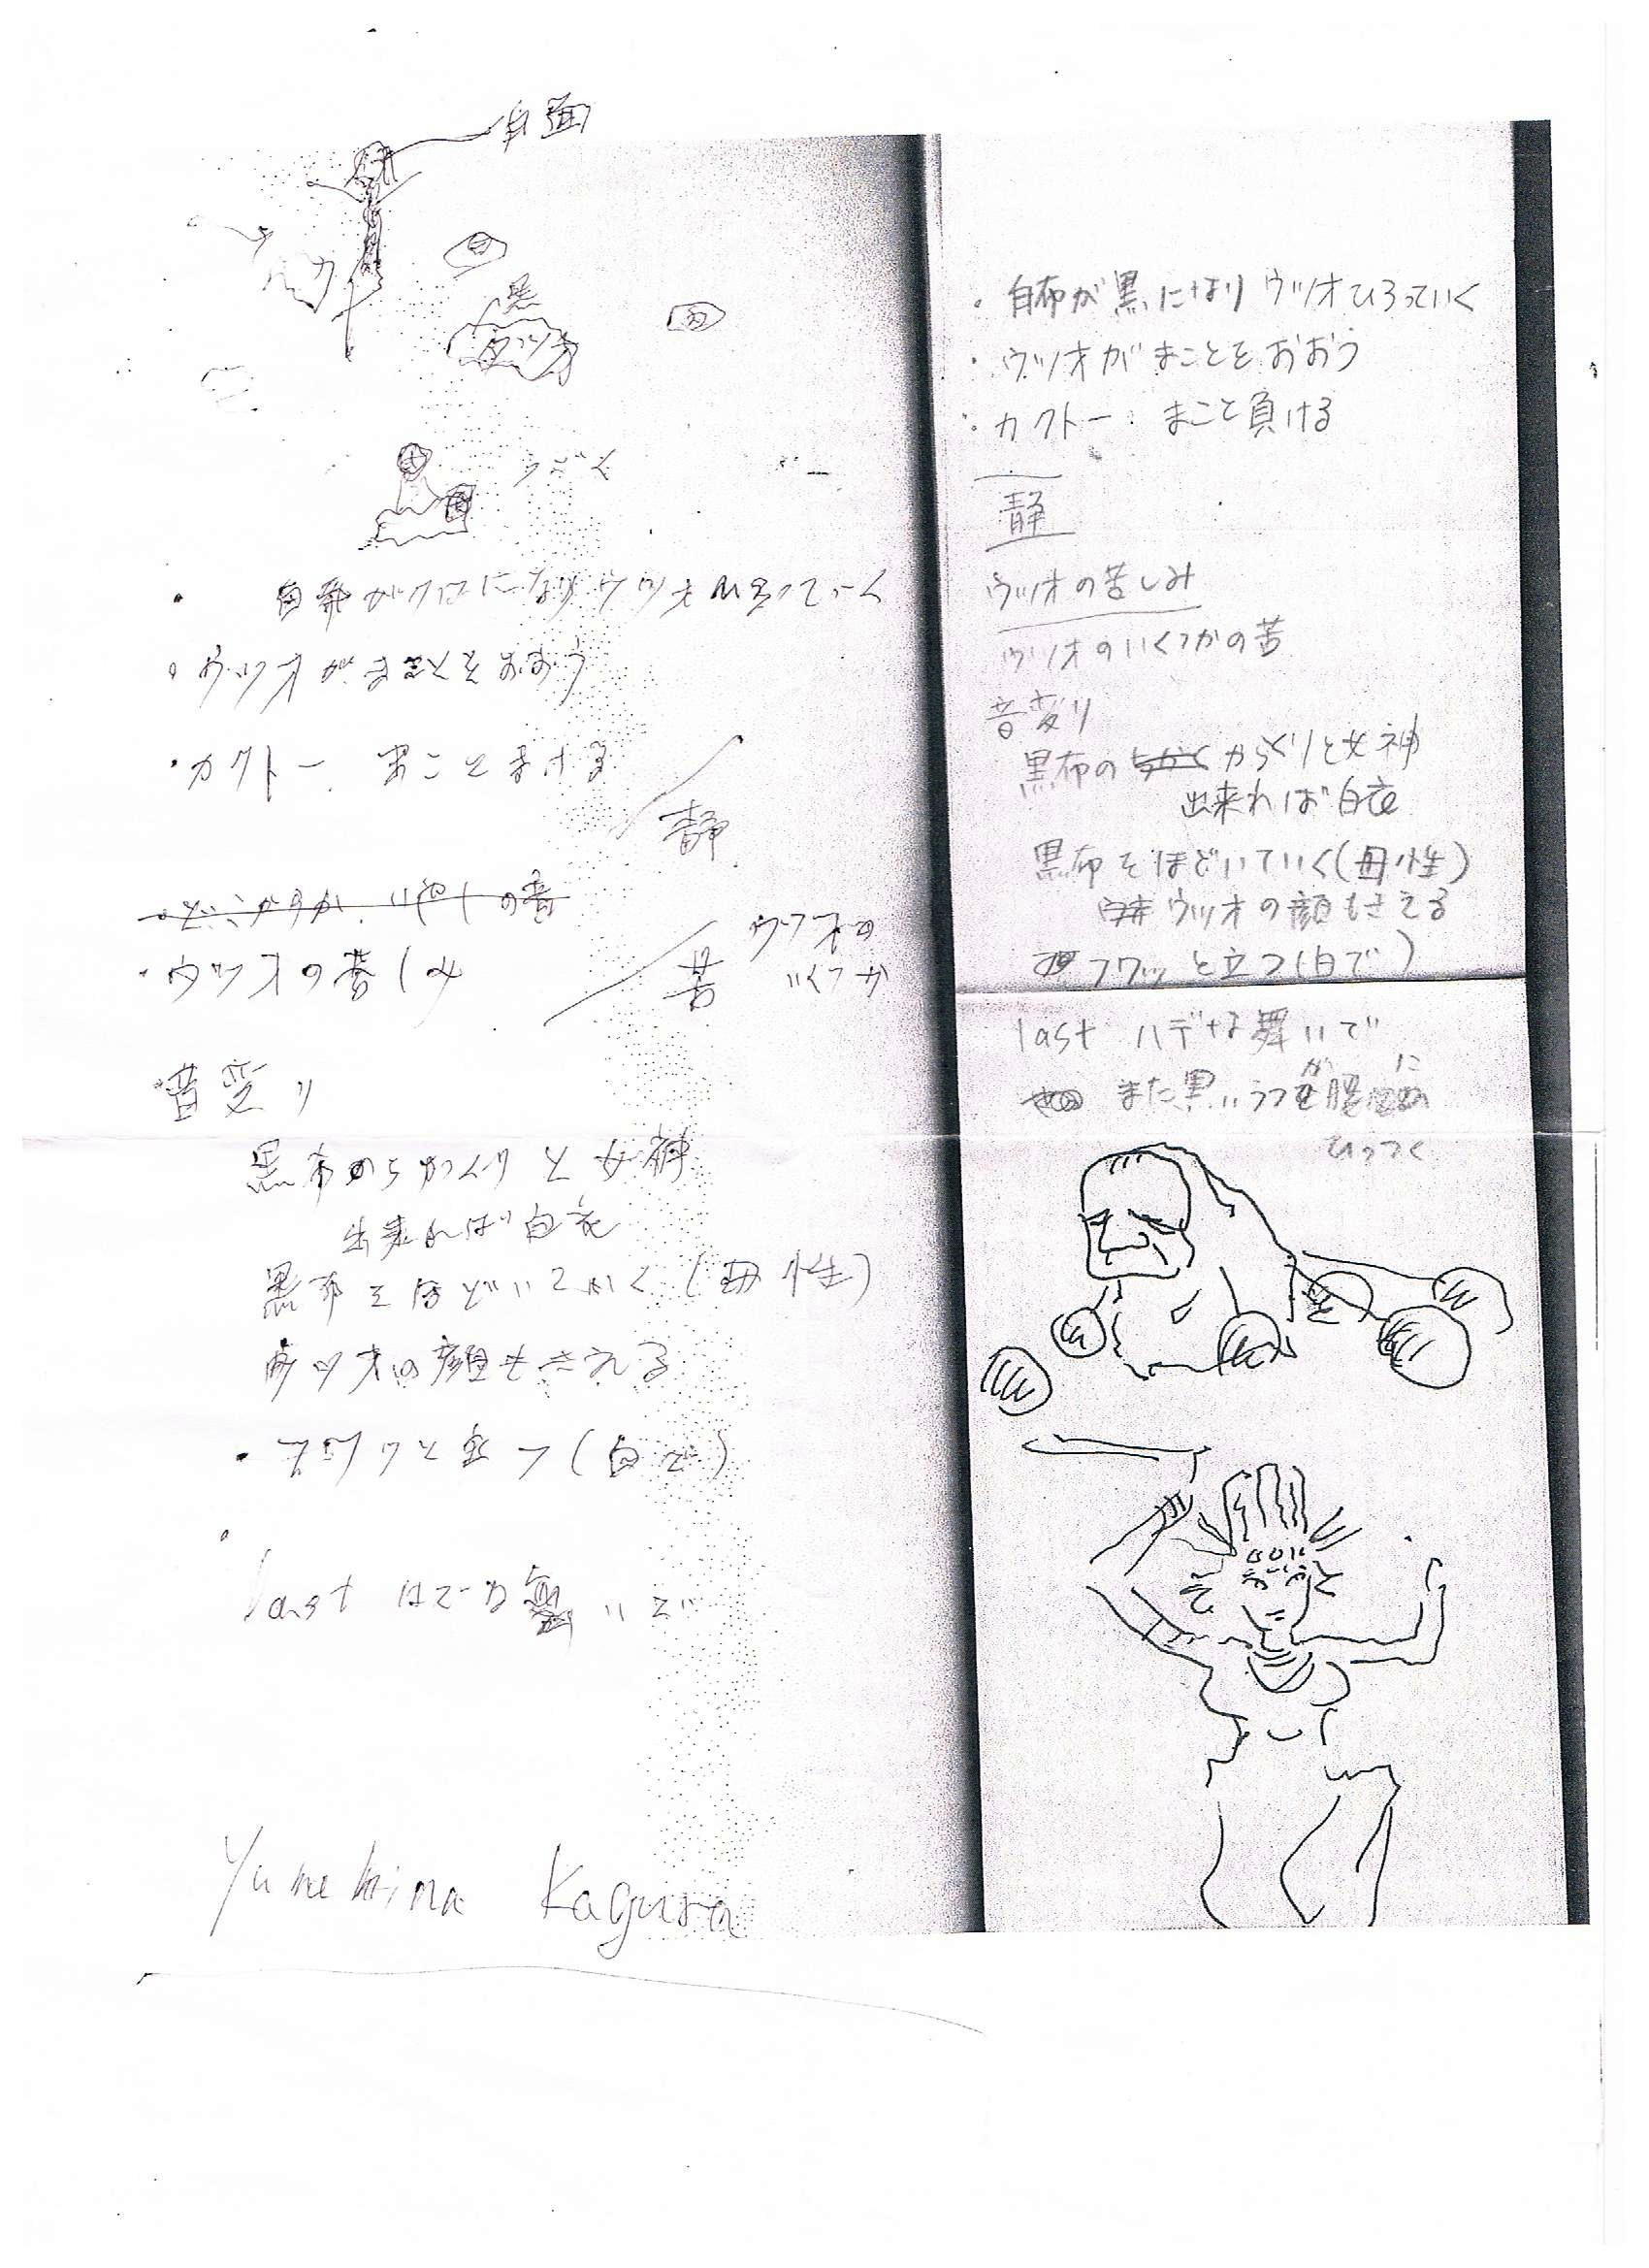 白面
黒
ウツオ
・白布が黒になりウツオひろっていく
・ウツオがまことをおおう
・カクトー まことまける
静
・ウツオの苦しみ
苦 ウツオの
いくつか
・音変り
黒布の
と女神
出来れば白衣
黒布をほどいていく(母性)
ウツオの顔もさえる
・フワッと立つ(白で)
last はでな舞いで
Yumehina Kagura
・白布が黒になりウツオひろっていく
・ウツオがまことをおおう
・カクトー まこと負ける
静
ウツオの苦しみ
ウツオのいくつかの苦
音変り
黒布の からくりと女神
出来れば白衣
黒布をほどいていく(母性)
ウツオの顔もさえる
フワッと立つ(白で)
last ハデな舞いで
また黒いうつ
ひっつく